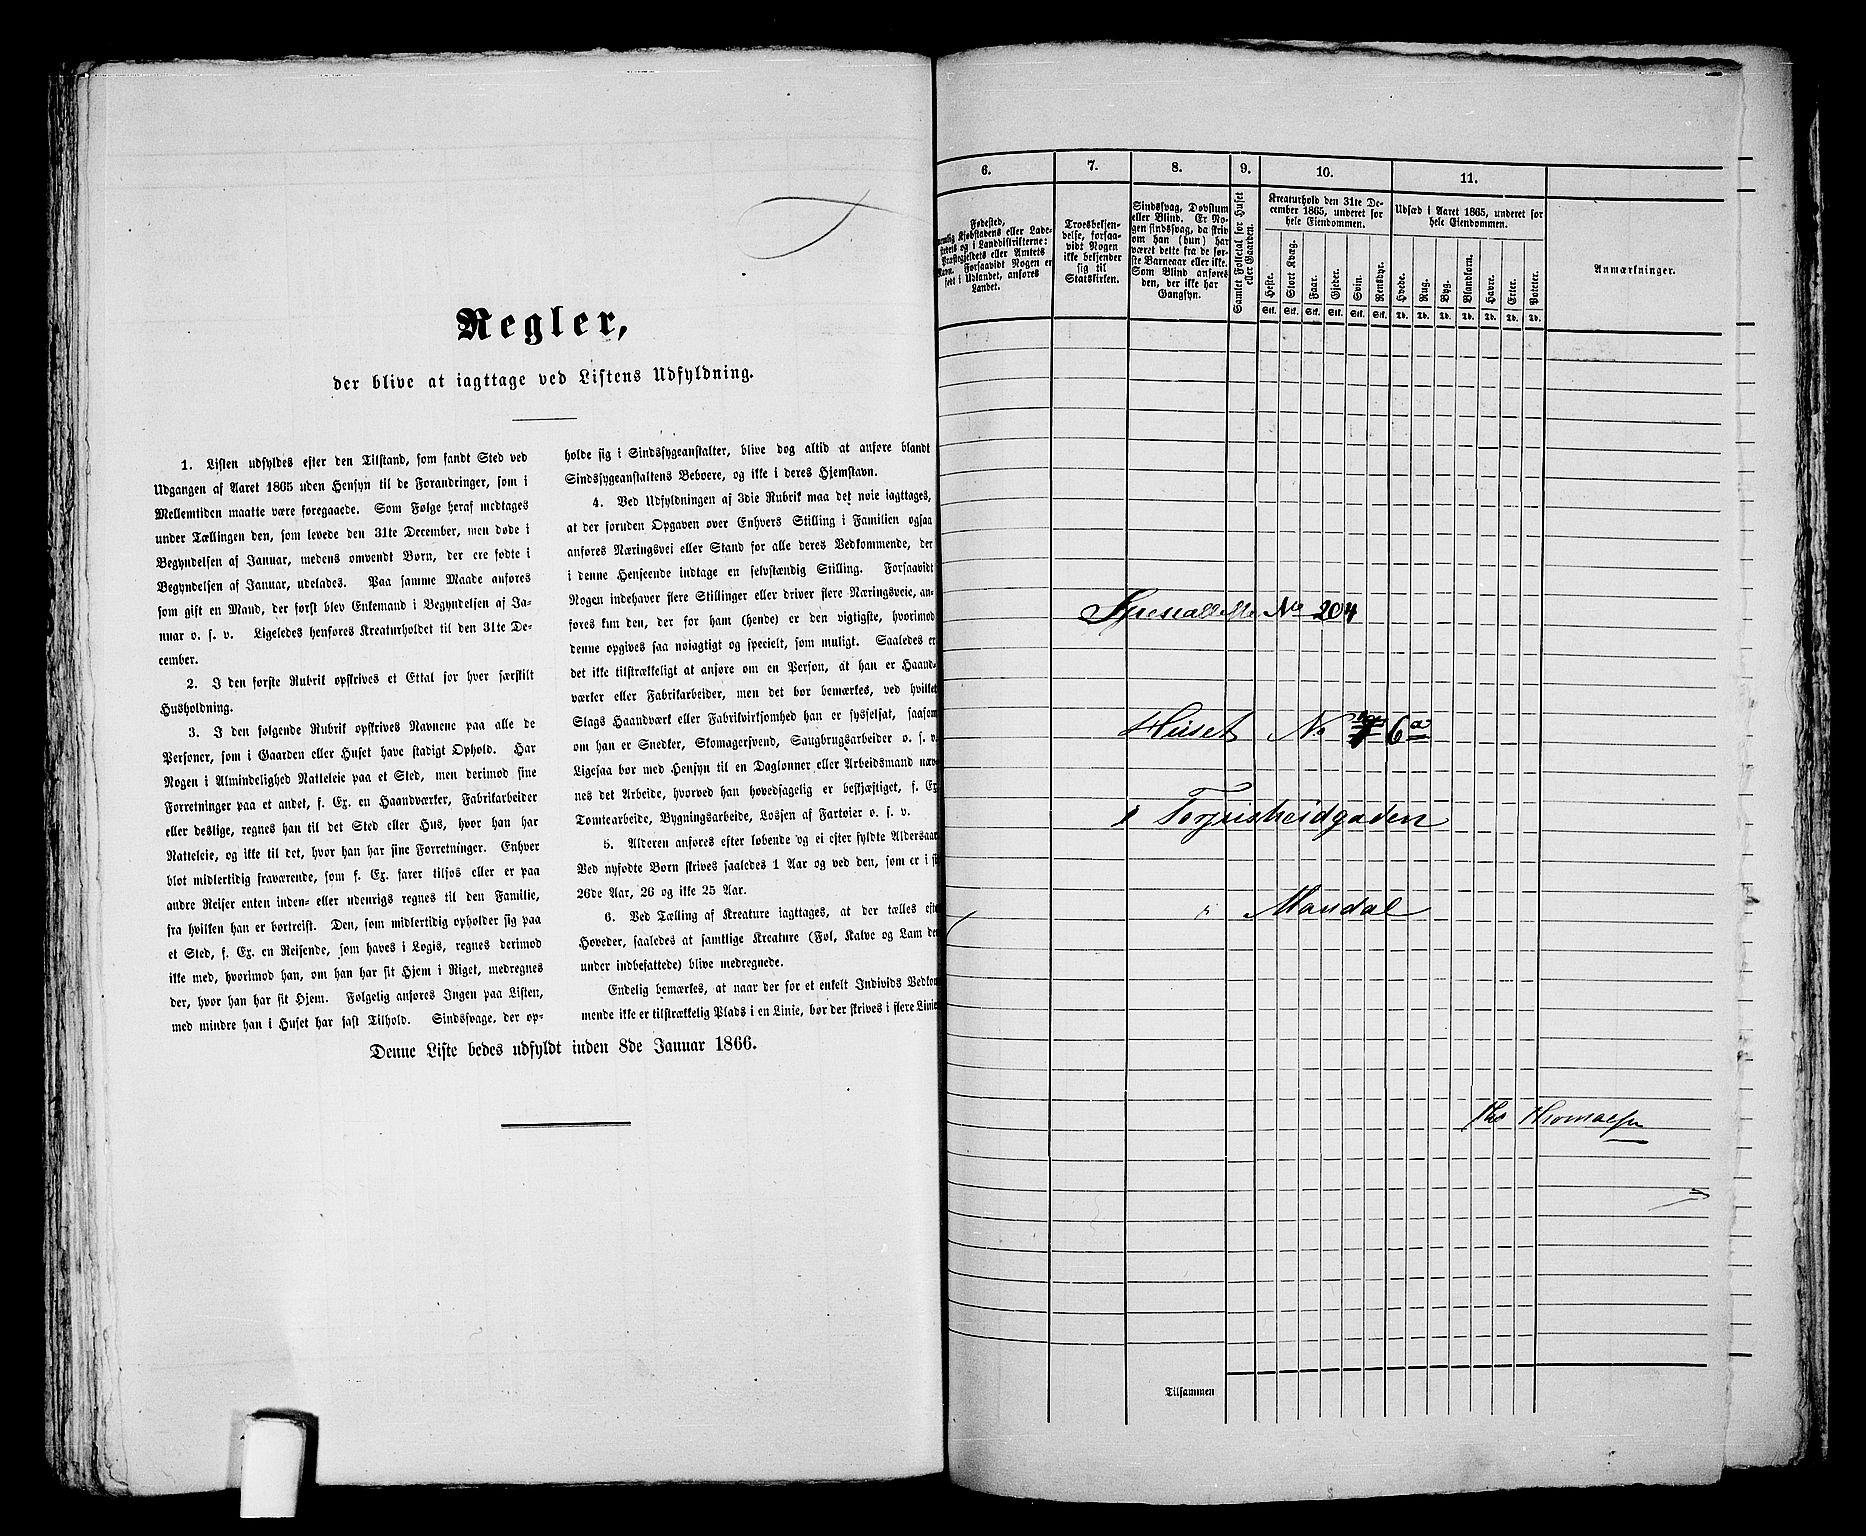 Regler,
der blive at iagttage ved Listens Udfyldning.
1. Listen udfyldes efter den Tilstand, som fandt Sted ved
Udgangen af Aaret 1865 uden Hensyn til de Forandringer, som i
Mellemtiden maatte være foregaaede. Som Følge heraf medtages
under Tællingen den, som levede den 31te December, men døde i
Begyndelsen af Januar, medens omvendt Børn, der ere fødte i
Begyndelsen af Januar, udelades. Paa samme Maade anføres
som gift en Mand, der først blev Enkemand i Begyndelsen af Ja-
nuar o. s. v. Ligeledes henføres Kreaturholdet til den 31te De-
cember.
2. I den første Rubrik opskrives et Ettal for hver særskilt
Husholdning.
3. I den følgende Rubrik opskrives Navnene paa alle de
Personer, som i Gaarden eller Huset have stadigt Ophold. Har
Nogen i Almindelighed Natteleie paa et Sted, men derimod sine
Forretninger paa et andet, f. Ex. en Haandværker, Fabrikarbeider
eller deslige, regnes han til det Sted eller Hus, hvor han har
Natteleie, og ikke til det, hvor han har sine Forretninger. Enhver
blot midlertidig fraværende, som f. Ex. farer tilsøs eller er paa
andre Reiser enten inden- eller udenrigs regnes til den Familie,
fra hvilken han er bortreist. Den, som midlertidig opholder sig paa
et Sted, f. Ex. en Reisende, som haves i Logis, regnes derimod
ikke med, hvorimod han, om han har sit Hjem i Riget, medregnes
der, hvor han har sit Hjem. Følgelig anføres Ingen paa Listen,
med mindre han i Huset har fast Tilhold. Sindssvage, der op-
holde sig i Sindssygeanstalter, blive dog altid at anføre blandt
Sindssygeanstaltens Beboere, og ikke i deres Hjemstavn.
4. Ved Udfyldningen af 3die Rubrik maa det nøie iagttages,
at der foruden Opgaven over Enhvers Stilling i Familien ogsaa
anføres Næringsvei eller Stand for alle deres Vedkommende, der
i denne Henseende indtage en selvstændig Stilling. Forsaavidt
Nogen indehaver flere Stillinger eller driver flere Næringsveie, an-
føres kun den, der for ham (hende) er den vigtigste, hvorimod
denne opgives saa nøiagtigt og specielt, som muligt. Saaledes er
det ikke tilstrækkeligt at anføre om en Person, at han er Haand-
værker eller Fabrikarbeider, men det bør bemærkes, ved hvilket
Slags Haandværk eller Fabrikvirksomhed han er sysselsat, saasom
om han er Snedker, Skomagersvend, Saugbrugsarbeider o. s. v.
Ligesaa bør med Hensyn til en Daglønner eller Arbeidsmand næv-
nes det Arbeide, hvorved han hovedsagelig er beskjæftiget, f. Ex
Tomtearbeide, Bygningsarbeide, Losjen af Fartøier o. s. v.
5. Alderen anføres efter løbende og ei efter fyldte Aldersaar
Ved nyfødte Børn skrives saaledes 1 Aar og ved den, som er i sit
26de Aar, 26 og ikke 25 Aar.
6. Ved Tælling af Kreature iagttages, at der tælles efte
Hoveder, saaledes at samtlige Kreature (Føl, Kalve og Lam der
under indbefattede) blive medregnede.
Endelig bemærkes, at naar der for et enkelt Individs Vedkom
mende ikke er tilstrækkelig Plads i en Linie, bør der skrives i flere Linie
Denne Liste bedes udfyldt inden 8de Januar 1866.
6. 7. 8. 9. 10. 11.
Fødested,
nemlig Kjøbstadens eller Lade-
stedets og i Landdistrikterne:
Præstegjeldets eller Amtets
Navn. Forsaavidt Nogen er
født i Udlandet, anføres
Landet.
Troesbekjen-
delse, forsaa-
vidt Nogen
ikke bekjender
sig til
Statskirken.
Sindssvag, Døvstum
eller Blind. Er No-
gen sindssvag, da skriv
om han (hun) har
været dette fra de før-
ste Barneaar eller ikke.
Som Blind anføres
den, der ikke har
Gangsyn.
Samlet Folketal for Huset
eller Gaarden.
Kreaturhold den 31te De-
cember 1865, underet for
hele Eiendommen.
Heste. Stort Kvæg. Faar. Gjeder. Svin. Rensdyr.
Stk. Stk. Stk. Stk. Stk. Stk.
Udsæd i Aaret 1865, underet for
hele Eiendommen.
Hvede. Rug. Byg. Blandkorn. Havre. Erter. Poteter.
Td. Td. Td. Td. Td. Td. Td.
Anmærkninger.
No 204
Huset No 6a
Torjusheidgaden
Mandal
Ths Thomassen
Tilsammen